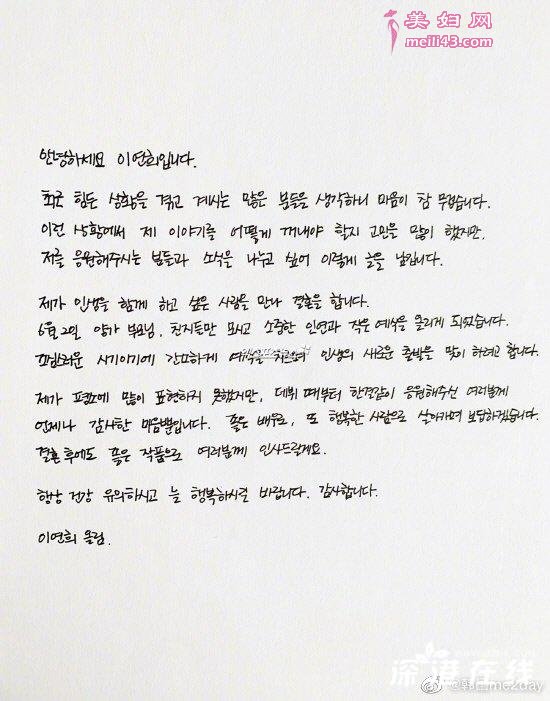 美妇网
meili43.com
안녕하세요 이연희입니다.
최근 힘든 상황을 겪고 계시는 많은 분들을 생각하니 마음이 참 무겁습니다.
이런 상황에서 제 이야기를 어떻게 꺼내야 할지 고민을 많이 했지만,
저를 응원해주시는 분들과 소식을 나누고 싶어 이렇게 글을 남깁니다.
제가 인생을 함께 하고 싶은 사람을 만나 결혼을 합니다.
6월 2일 양가 부모님, 친지들만 모시고 소중한 인연과 작은 예식을 올리게 되었습니다.
조심스러운 시기이기에 간소하게 예식을 치르며 인생의 새로운 출발을 맞이 하려고 합니다.
제가 평소에 많이 표현하지 못했지만, 데뷔 때부터 한결같이 응원해주신 여러분께
언제나 감사한 마음뿐입니다. 좋은 배우로, 또 행복한 사람으로 살아가며 보답하겠습니다.
결혼 후에도 좋은 작품으로 여러분께 인사드릴게요.
항상 건강 유의하시고 늘 행복하시길 바랍니다. 감사합니다.
이연희 올림.
深港在线
@韩国me2day